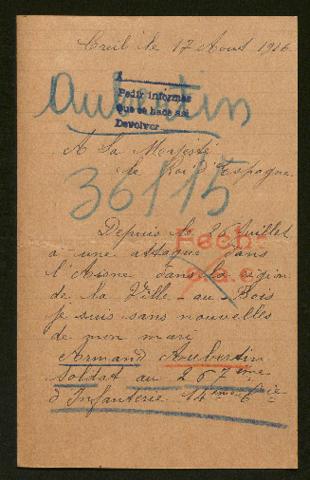 Creil le 17 Aout 1916
Aubertin
Pedir informes
que se hace así
Devolver
A Sa Majesté
le Roi d'Espagne
36115
Depuis le 26 Juillet
Fech
a une attaque dans
l'Aisne dans la région
de la Ville - au - Bois
je suis sans nouvelles
de mon mari
Armand Aubertin
Soldat au 267ème
d'Infanterie 14ème Cie